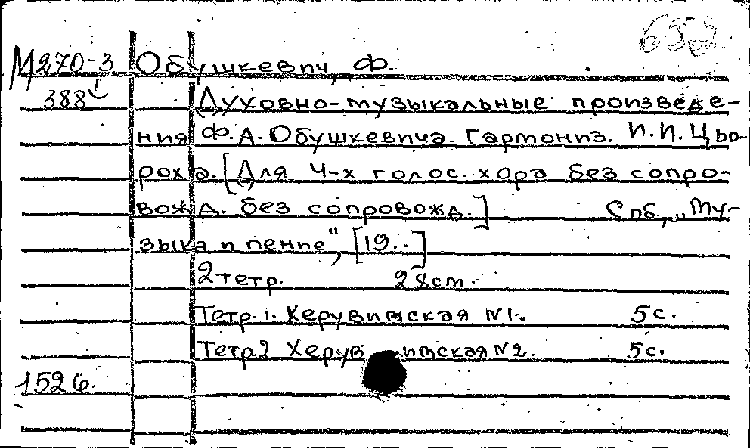 652
М270-3 Обушкевич, Ф.
388
Духовно-музыкальные произведе-
ния Ф.А. Обушкевича. Гармониз. И.И. Цьо-
роха. [Для 4-х голос. хора без сопро-
вожд. без сопровожд.] Спб, „Му-
зыка и пение", [19..]
2 тетр. 28 cm.
Тетр. 1. Херувимская №1. 5 с.
Тетр. 2 Херувимская №2. 5 с.
1526.